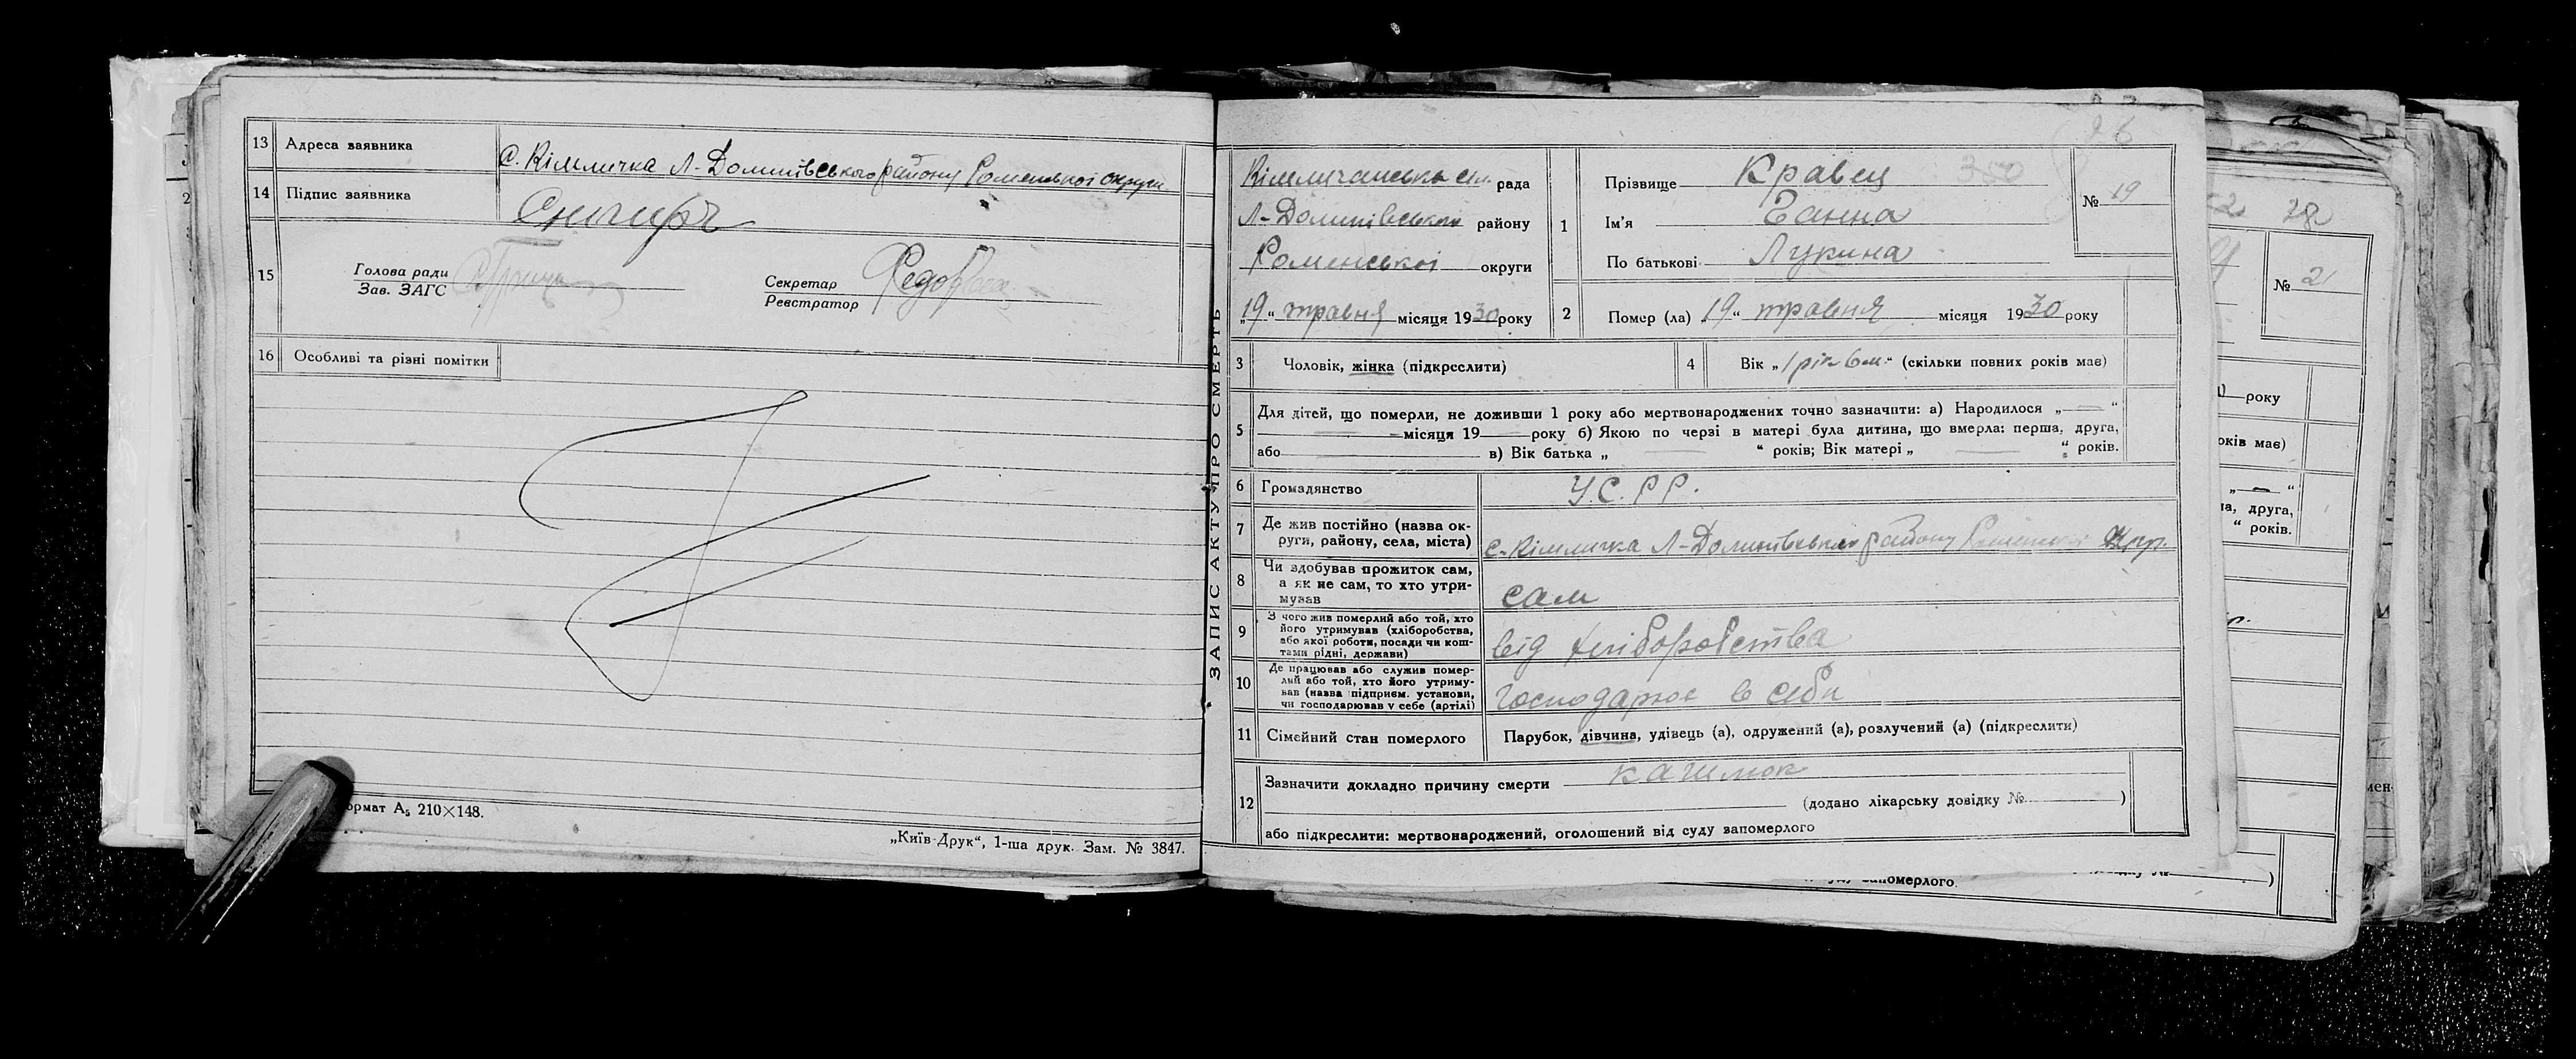 13 Адреса заявника С. Кімличка Л-Долинівського району Роменської округи
14 Підпис заявника Снигирь
15 Голова ради
Зав. ЗАГС
Секретар
Реєстратор
16 Особливі та різні помітки
формат А5 210×148.
„Київ-Друк“, 1-ша друк. Зам. № 3847.
ЗАПИС АКТУ ПРО СМЕРТЬ
26
350
Кімличанська сіл. рада
Л-Долинівського району
Роменської округи
„19“ травня місяця 1930 року
1 Прізвище Кравец
Ім'я Ганна
По батькові Лукина
№ 19
2 Помер (ла) „19“ травня місяця 1930 року
3 Чоловік, жінка (підкреслити)
4 Вік „1 рік 6 м.“ (скільки повних років має)
5 Для дітей, що померли, не доживши 1 року або мертвонароджених точно зазначити: а) Народилося „—“
місяця 19 року б) Якою по черзі в матері була дитина, що вмерла: перша, друга,
або в) Вік батька „ “ років; Вік матері „ “ років.
6 Громадянство У.С.Р.Р.
7 Де жив постійно (назва ок-
руги, району, села, міста) с. Кімличка Л-Долинівського району Роменської окр.
8 Чи здобував прожиток сам,
а як не сам, то хто утри-
мував сам
9 З чого жив померлий або той, хто
його утримував (хліборобства,
або якої роботи, посади чи кош-
тами рідні, держави) від хліборобства
10 Де працював або служив помер-
лий або той, хто його утриму-
вав (назва підприєм. установи,
чи господарював у себе (артілі) господарює в себи
11 Сімейний стан померлого Парубок, дівчина, удівець (а), одружений (а), розлучений (а) (підкреслити)
12 Зазначити докладно причину смерти кашлюк
(додано лікарську довідку № )
або підкреслити: мертвонароджений, оголошений від суду запомерлого
№ 21
року
оків має)
„—“
а, друга,
“ років.
запомерлого.